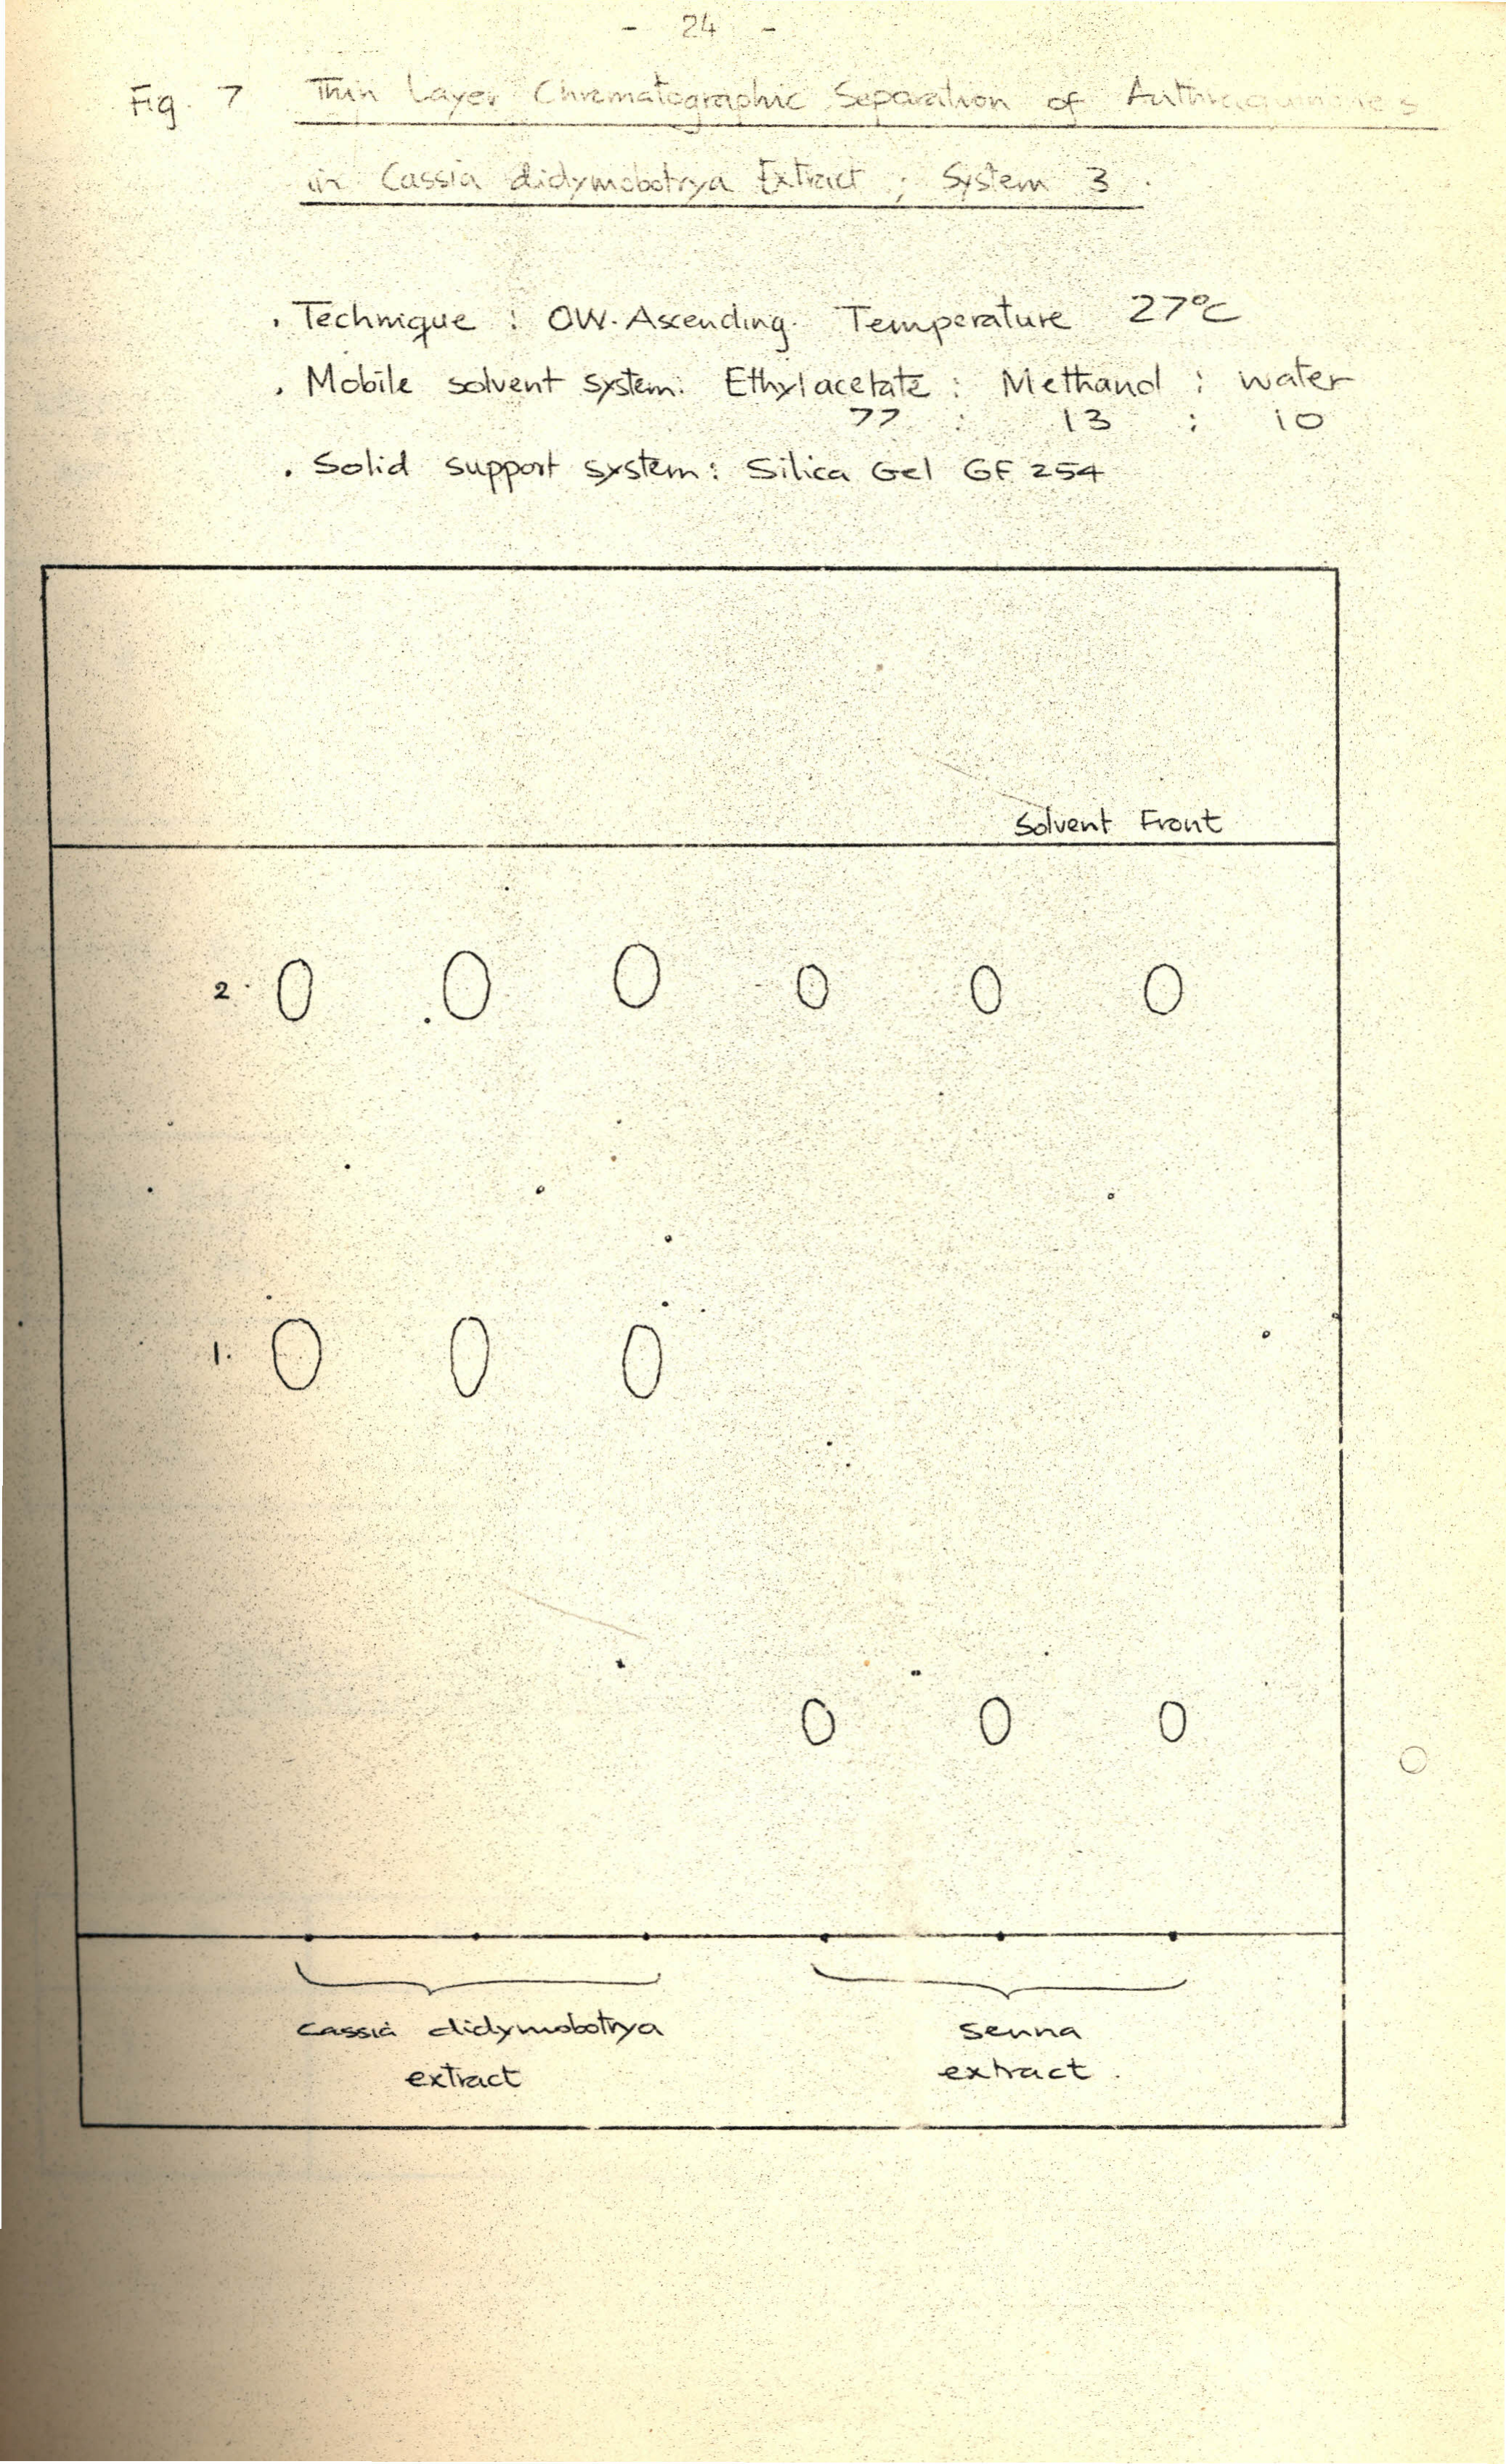 - 24 -
Fig. 7 Thin Layer Chromatographic Separation of Anthraquinones
in Cassia didymobotrya Extract ; System 3.
. Technique : OW. Ascending. Temperature 27°C
. Mobile solvent system: Ethylacetate : Methanol : water
77 : 13 : 10
. Solid support system: Silica Gel GF 254
Solvent Front
2.
1.
Cassia didymobotrya
extract
Senna
extract.